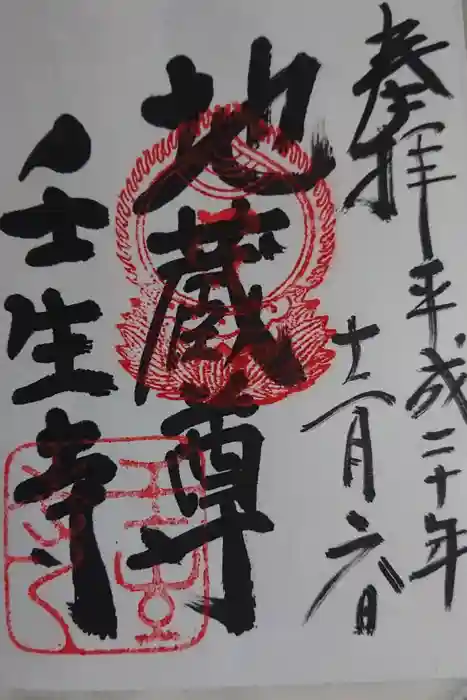 奉拝
平成二十年
十一月六日
地蔵尊
壬生寺